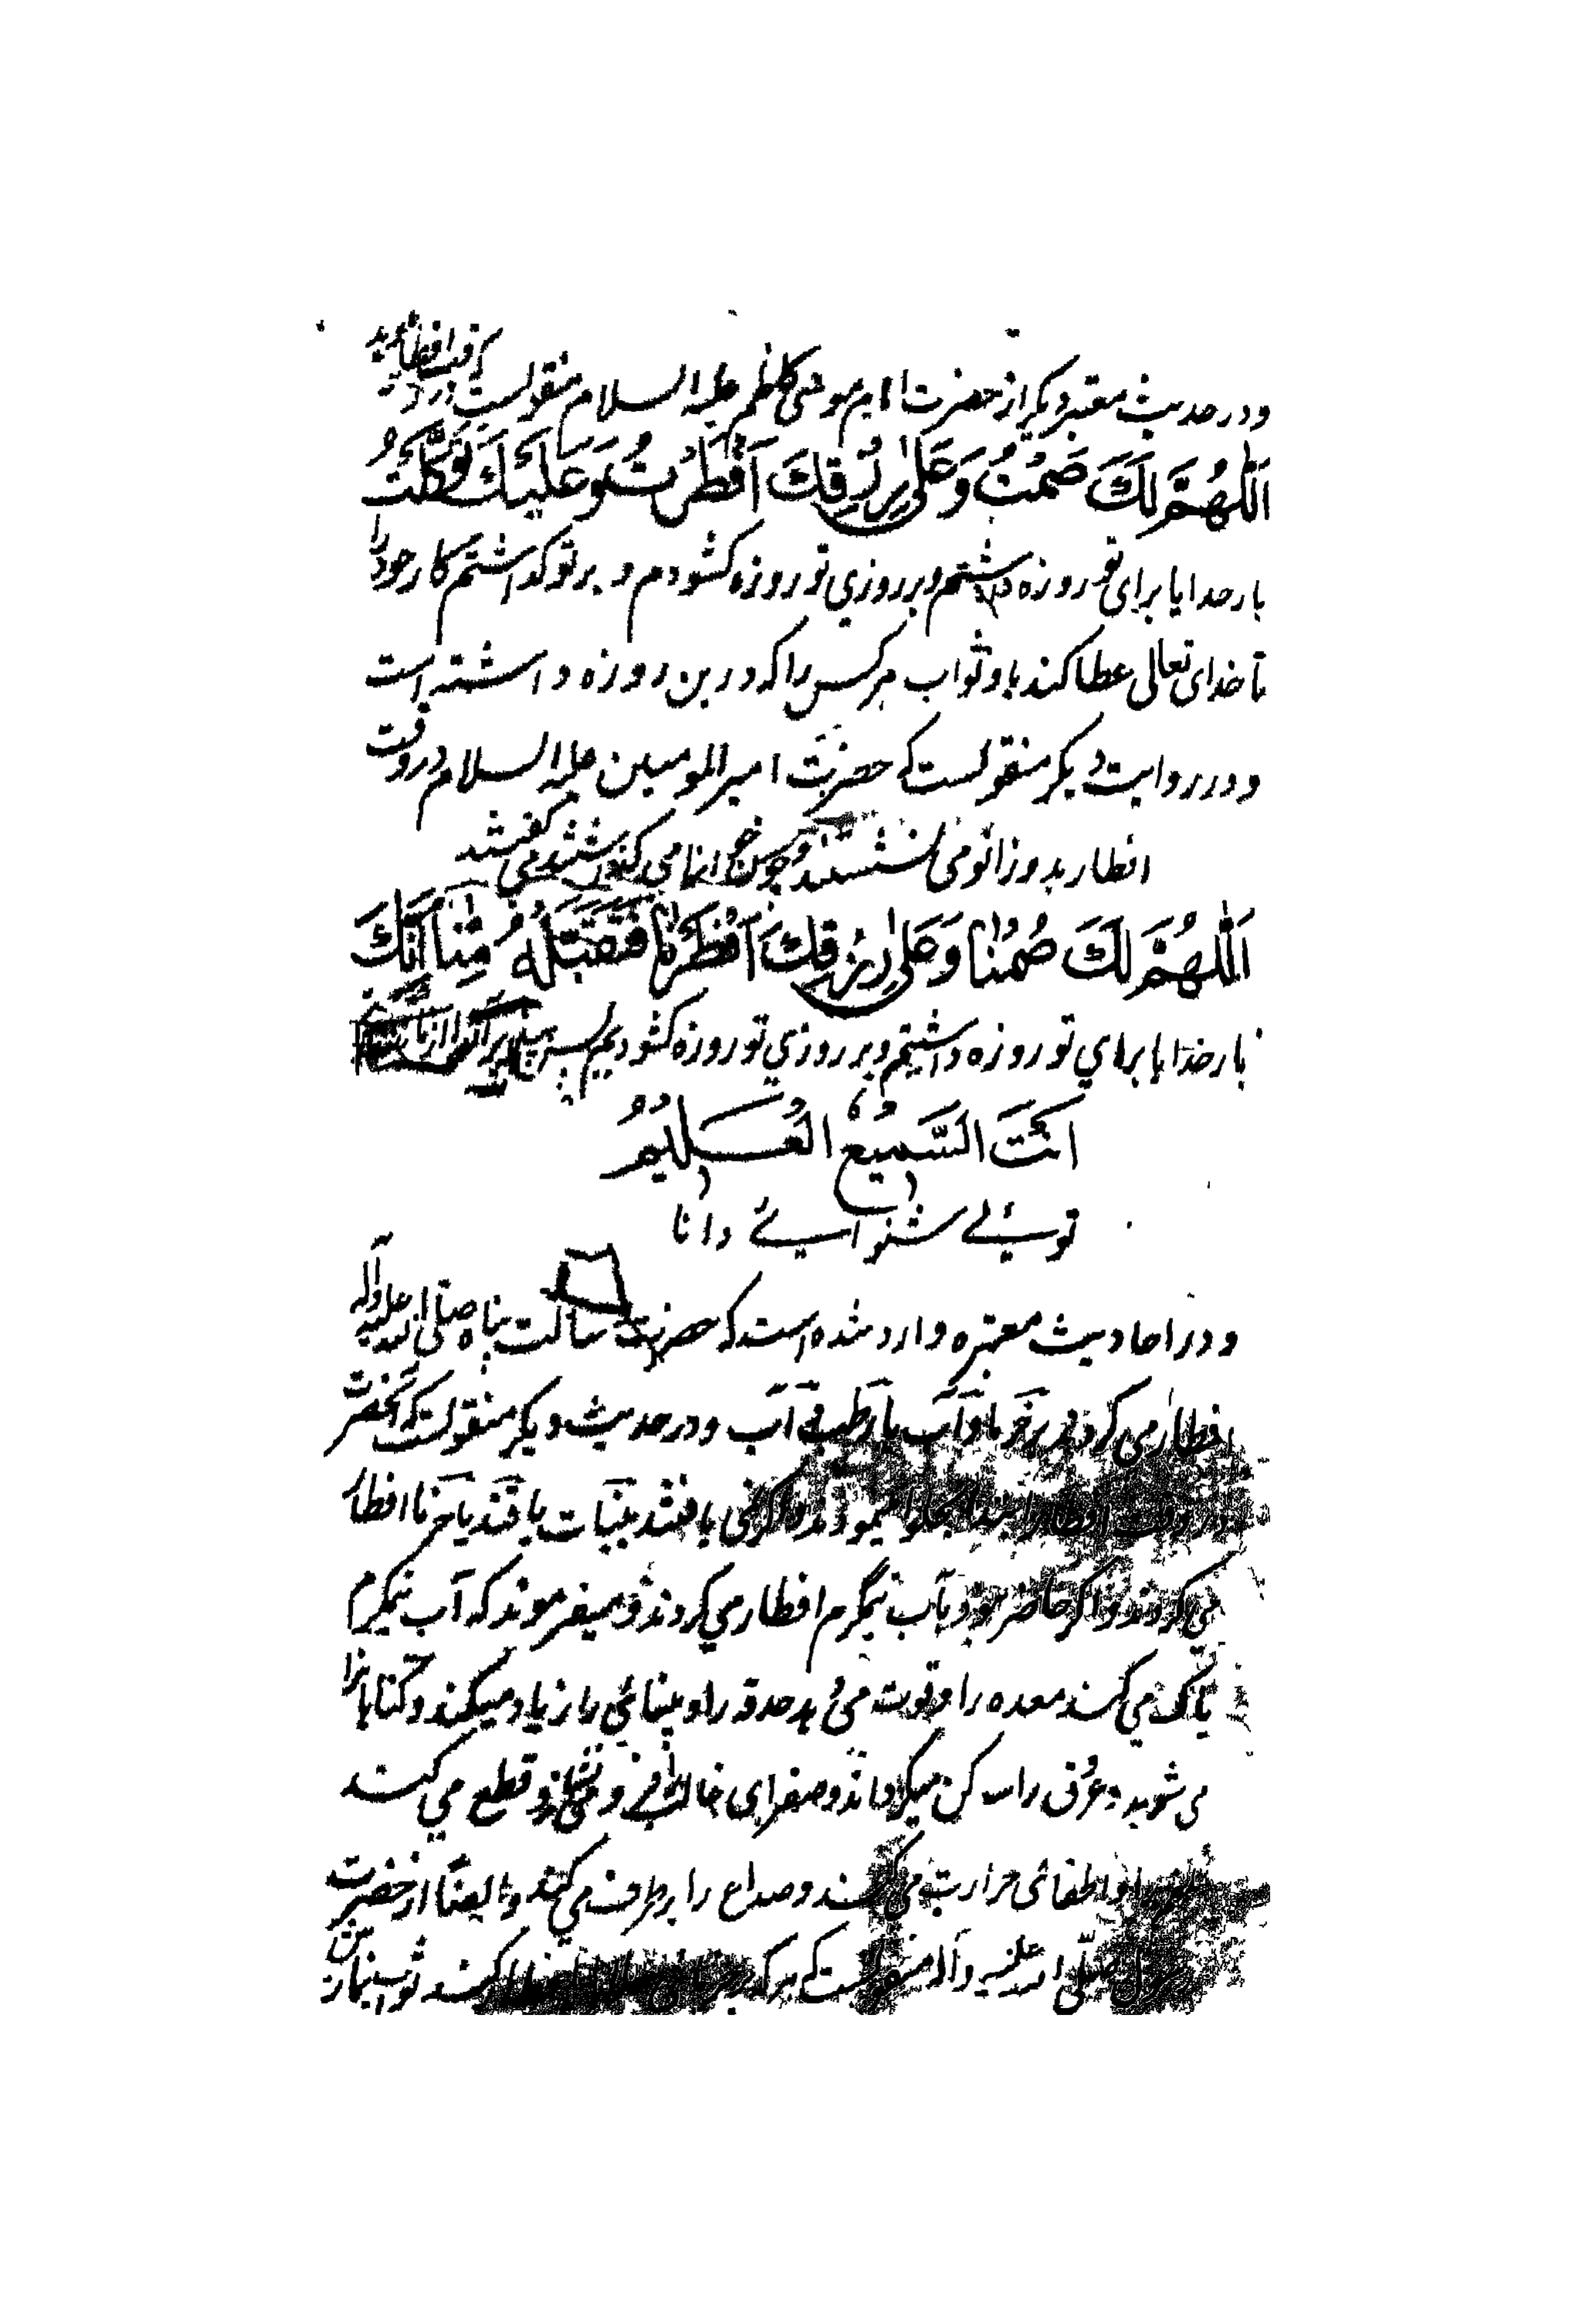 ودر حدیث معتبر دیگر از حضرت امام موسی کاظم علیه السلام منقولست در وقت افطار بگوید
اَللّٰهُمَّ لَكَ صُمْتُ وَعَلٰى رِزْقِكَ اَفْطَرْتُ وَعَلَيْكَ تَوَكَّلْتُ
بار خدایا برای تو روزه داشتم و بر روزی تو روزه کشودم و بر تو گذاشتم کار خود را
تا خدای تعالی عطا کند باو ثواب هر کس را که درین روزه داشته است
و در روایت دیگر منقولست که حضرت امیر المومنین علیه السلام در وقت
افطار بدو زانو می نشستند و چون خوان می گفتند
اَللّٰهُمَّ لَكَ صُمْنَا وَعَلٰى رِزْقِكَ اَفْطَرْنَا فَتَقَبَّلْهُ مِنَّا اِنَّكَ
بار خدایا برای تو روزه داشتیم و بر روزی تو روزه کشودیم پس
اَنْتَ السَّمِيعُ الْعَلِيمُ
توئی شنوای دانا
و در احادیث معتبره وارد شده است که حضرت رسالت پناه صلی الله علیه وآله
افطار می کردند بخرما و آب یا رطب و آب و در حدیث دیگر منقولست که آنحضرت
در وقت افطار ابتدا بحلوا میفرمودند و اگر نمی یافتند بنبات یا قند یا خرما افطار
می کردند و اگر حاضر نبود بآب نیمگرم افطار می کردند و میفرمودند که آب نیمگرم
پاک می کند معده را و قوت می دهد حدقه را و بینائی را زیاد میکند و گناهانرا
می شوید و عرق را ساکن میگرداند و صفرای غالب را فرو می نشاند و قطع می کند
بلغم را و اطفای حرارت می کند و صداع را برطرف می کند و ایضا از حضرت
رسول صلی الله علیه وآله منقولست که هر که بخرمای حلال افطار کند ثواب نمازش